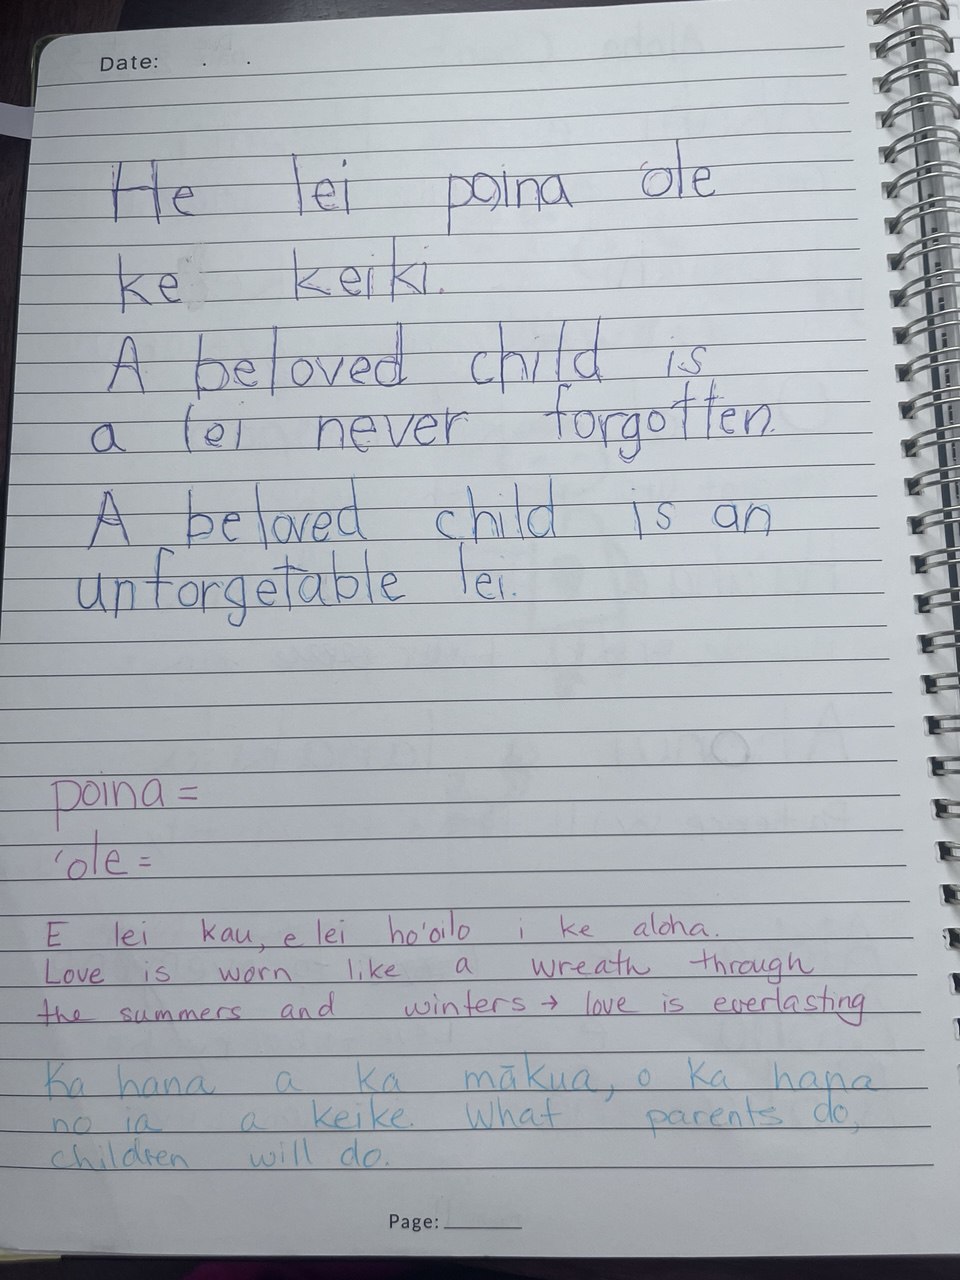 Date: . .
He lei poina ole
ke keiki.
A beloved child is
a lei never forgotten.
A beloved child is an
unforgetable lei.
poina =
'ole =
E lei kau, e lei ho'oilo i ke aloha.
Love is worn like a wreath through
the summers and winters → love is everlasting
Ka hana a ka mākua, o ka hana
no ia a keike. What parents do,
children will do.
Page: